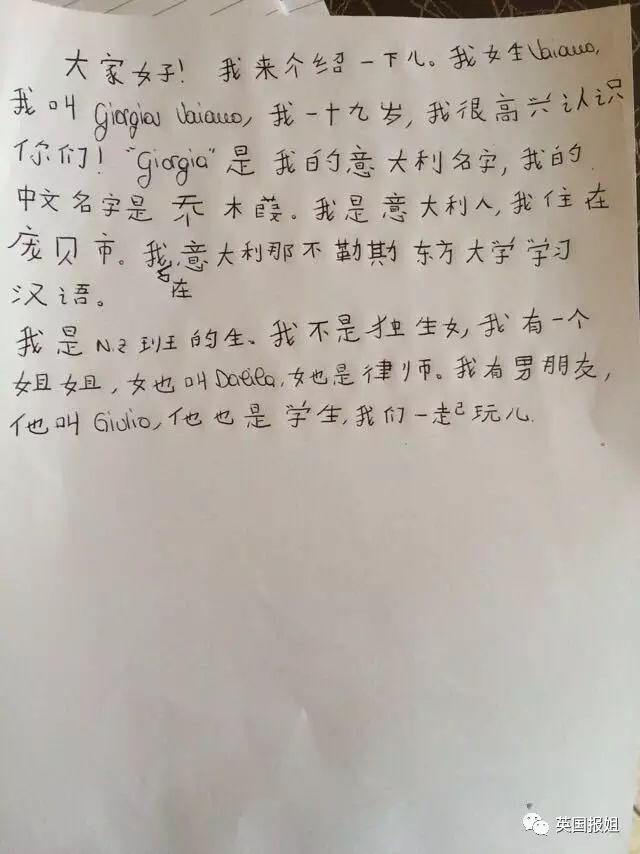 大家女子！我来介绍一下儿。我女生Vaiano,
我叫 Giorgia Vaiano, 我一十九岁, 我很高兴认识
你们！"Giorgia"是我的意大利名字, 我的
中文名字是乔木葭。我是意大利人, 我住在
庞贝市。我在意大利那不勒斯东方大学学习
汉语。
我是 N.2 班的生。我不是独生女, 我有一个
姐姐, 她叫Dalila, 她是律师。我有男朋友,
他叫 Giulio, 他也是学生, 我们一起玩儿.
英国报姐